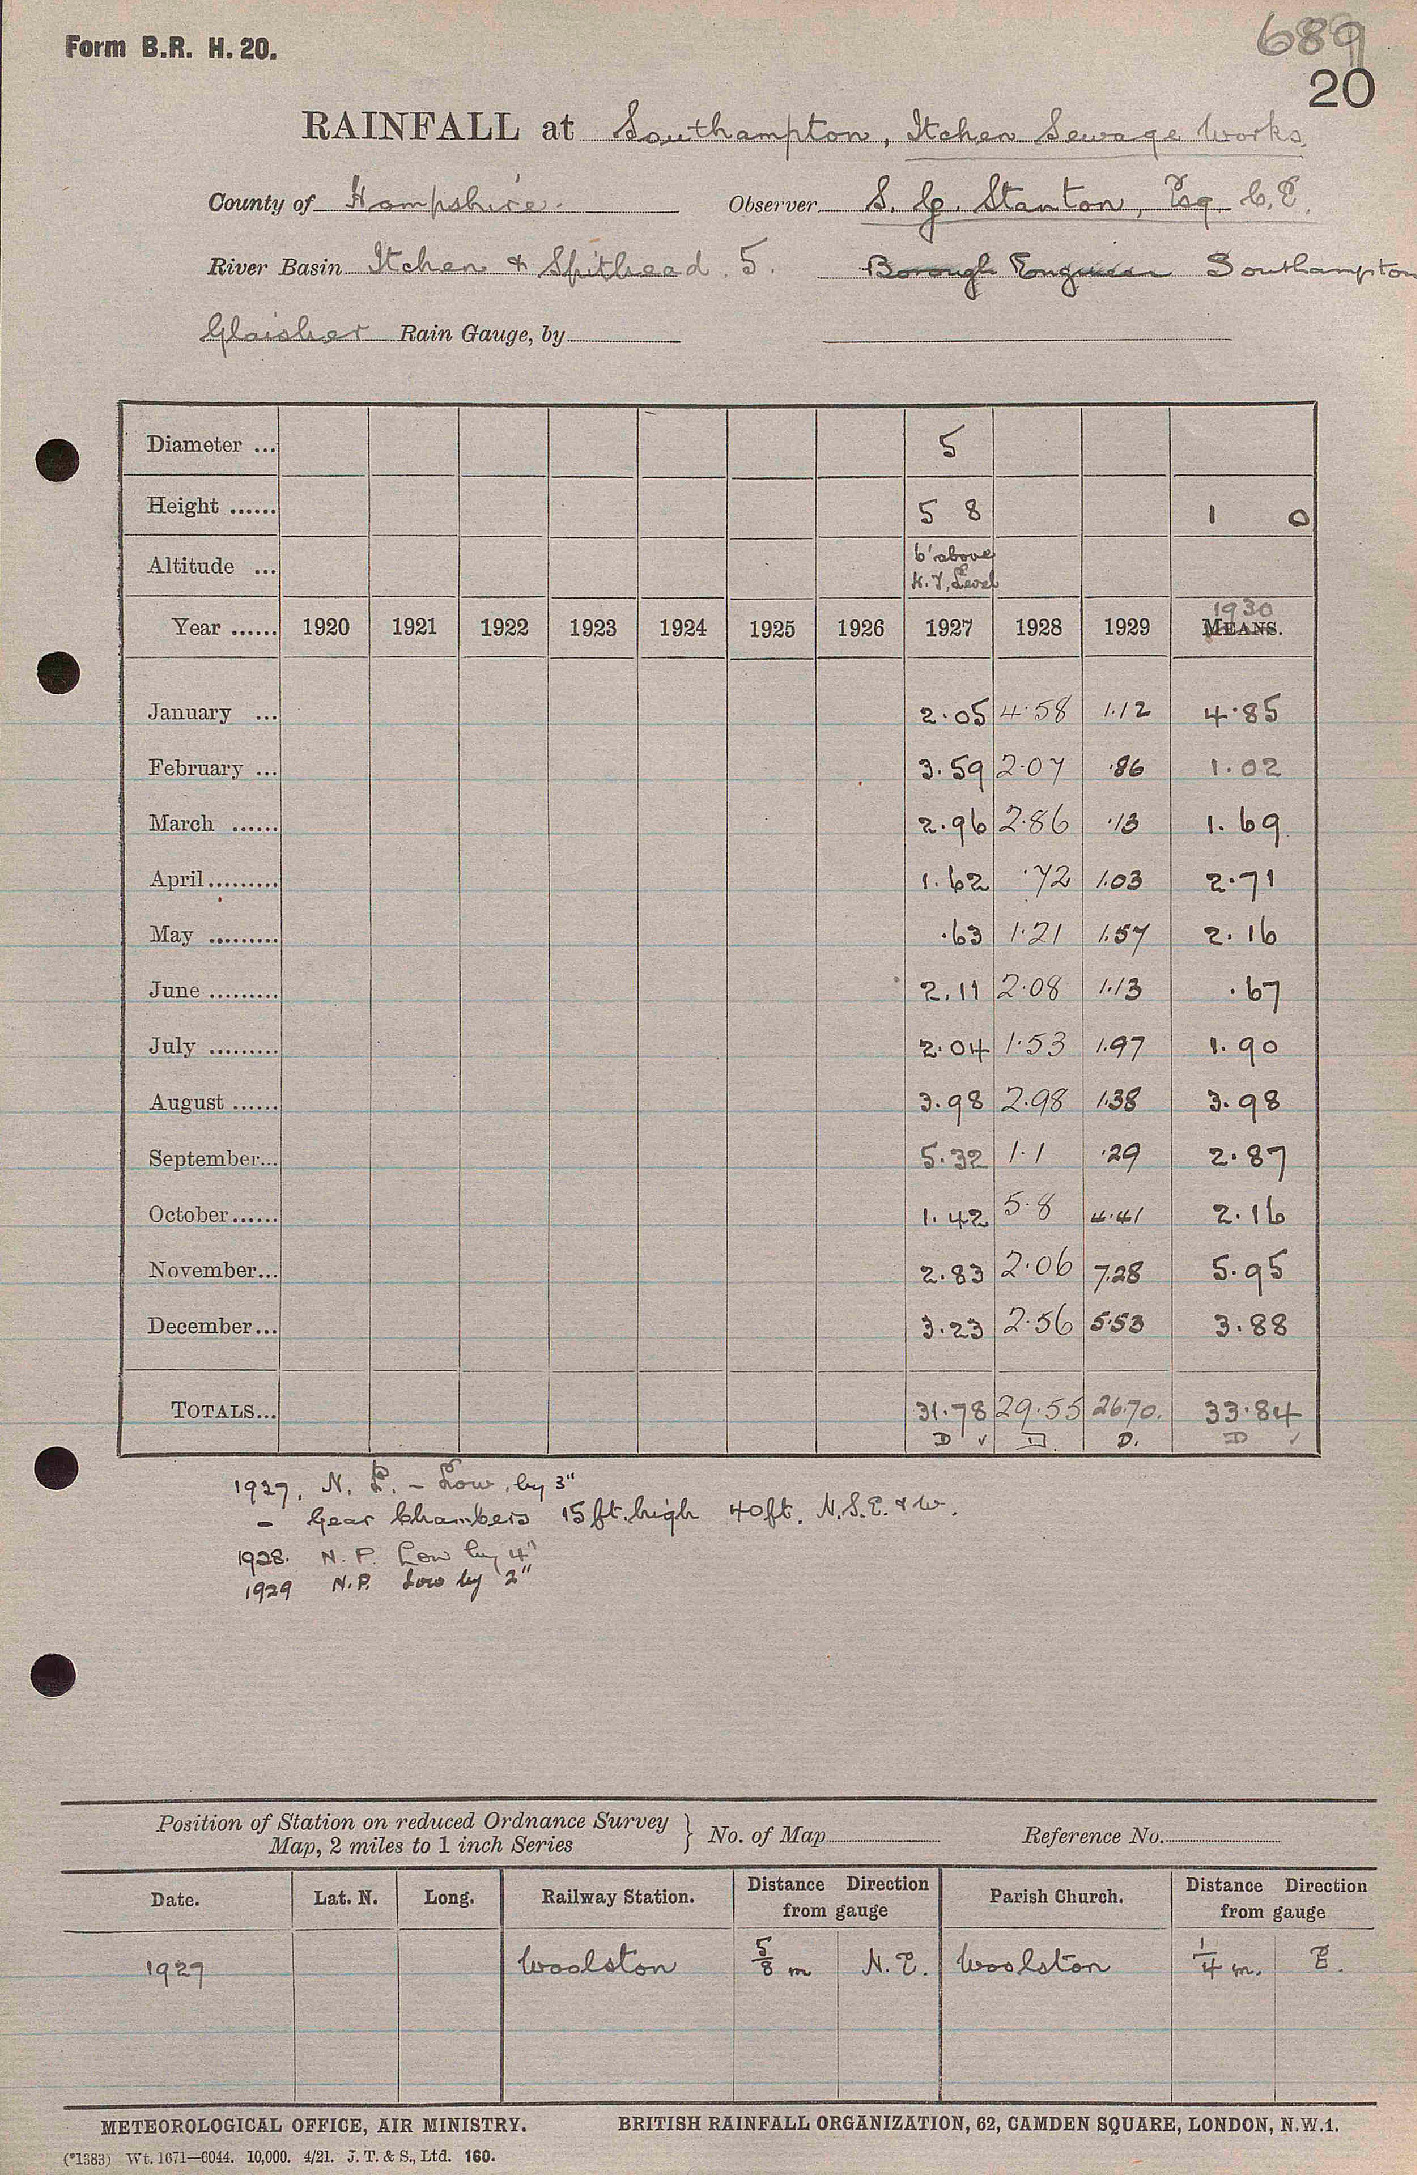 Form B.R. H. 20.
689
20
RAINFALL at Southampton, Itchen Sewage Works
County of Hampshire. Observer S. G. Stanton, Esq. C.E.
River Basin Itchen & Spithead. 5. Borough Engineer Southampton
Glaisher Rain Gauge, by
Diameter ... 5
Height ...... 5 8 1 0
Altitude ... 6' above H.T. Level
1930
Year ...... 1920 1921 1922 1923 1924 1925 1926 1927 1928 1929 MEANS.
January ... 2.05 4.58 1.12 4.85
February ... 3.59 2.07 .86 1.02
March ...... 2.96 2.86 .13 1.69
April ......... 1.62 .72 1.03 2.71
May ......... .63 1.21 1.57 2.16
June ......... 2.11 2.08 1.13 .67
July ......... 2.04 1.53 1.97 1.90
August ...... 3.98 2.98 1.38 3.98
September... 5.32 1.1 .29 2.87
October...... 1.42 5.8 4.41 2.16
November... 2.83 2.06 7.28 5.95
December... 3.23 2.56 5.53 3.88
TOTALS... 31.78 29.55 26.70. 33.84
D ✓ D. D. D ✓
1927. N. P. – Low, by 3"
– Gear Chambers 15 ft. high 40 ft. N.S.E. & W.
1928. N. P. Low by 4"
1929 N.P. Low by 2"
Position of Station on reduced Ordnance Survey Map, 2 miles to 1 inch Series } No. of Map Reference No.
Date. Lat. N. Long. Railway Station. Distance Direction from gauge Parish Church. Distance Direction from gauge
1927 Woolston 5/8 m N.E. Woolston 1/4 m. E.
METEOROLOGICAL OFFICE, AIR MINISTRY. BRITISH RAINFALL ORGANIZATION, 62, CAMDEN SQUARE, LONDON, N.W.1.
(*1383) Wt. 1671—6044. 10,000. 4/21. J. T. & S., Ltd. 160.